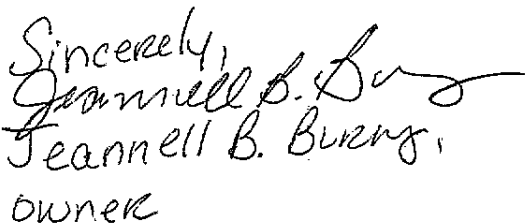 Sincerely,
Jeannell B.
Jeannell B. Burns,
owner